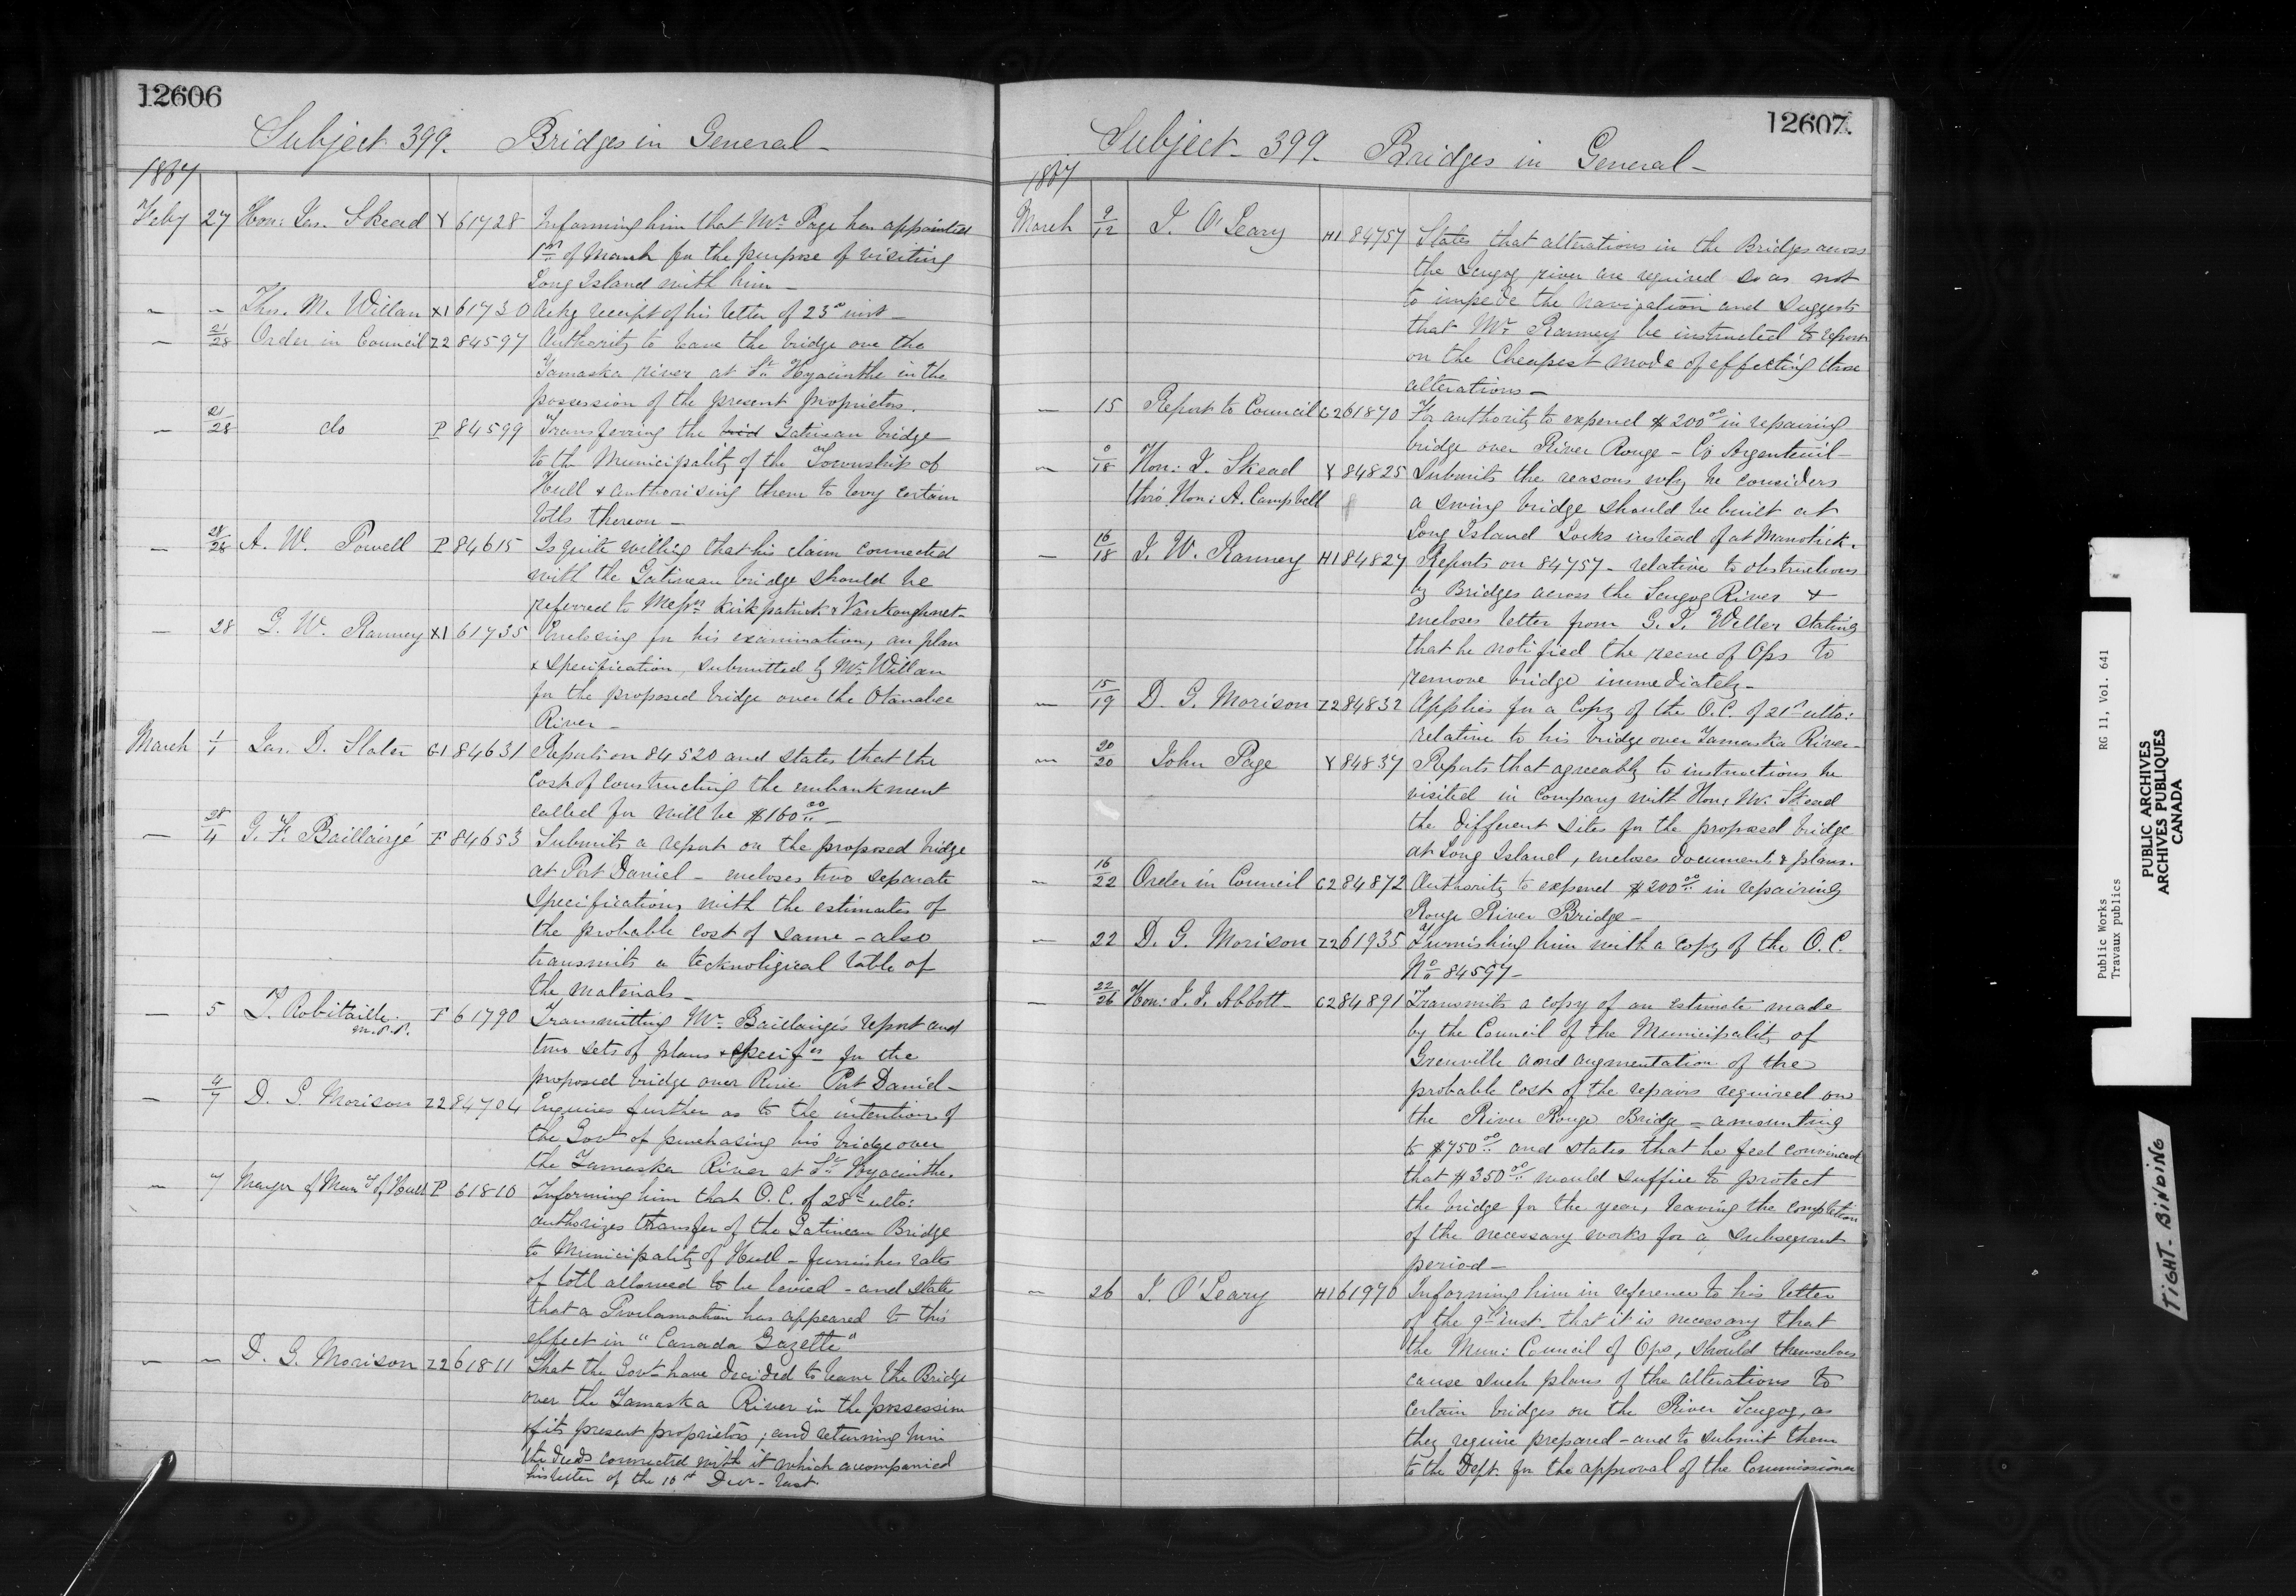 12606
Subject 399. Bridges in General -
1867
Feby 27 Hon: Jas. Skead Y 61728 Informing him that Mr. Page has appointed
1st of March for the purpose of visiting
Long Island with him -
- - Thos. M. Willan X1 61730 Ackg receipt of his letter of 23d inst -
- 21/28 Order in Council Z2 84597 Authority to leave the bridge over the
Yamaska river at St. Hyacinthe in the
possession of the present proprietors.
- 21/28 do P 84599 Transferring the Gatineau bridge
to the Municipality of the Township of
Hull & authorising them to levy certain
tolls thereon -
- 28/28 A. W. Powell P 84615 Is quite willing that his claim connected
with the Gatineau bridge should be
referred to Messrs Kirkpatrick & Vankoughnet -
- 28 G. W. Ranney X1 61735 Enclosing for his examination, an plan
& specification, submitted by Mr. Willan
for the proposed bridge over the Otanabee
River -
March 1/1 Jas. D. Slater G1 84631 Reports on 84520 and states that the
cost of constructing the embankment
called for will be $160.00 -
- 28/4 G. F. Baillairgé F 84653 Submits a report on the proposed bridge
at Port Daniel - encloses two separate
specifications with the estimates of
the probable cost of same - also
transmits a technoligical table of
the materials -
- 5 T. Robitaille F 61790 Transmitting Mr. Baillairgé's report and
M.P.P.
two sets of plans & specifns for the
proposed bridge over River Port Daniel -
- 4/7 D. G. Morison Z2 84704 Enquires further as to the intention of
the Govt of purchasing his bridge over
the Yamaska River at St. Hyacinthe.
- 7 Mayor of Mun. of Hull P 61810 Informing him that O.C. of 28th ulto:
authorizes transfer of the Gatineau Bridge
to Municipality of Hull - furnishes rates
of toll allowed to be levied - and state
that a Proclamation has appeared to this
effect in "Canada Gazette"
- - D. G. Morison Z2 61811 That the Govt have decided to leave the Bridge
over the Yamaska River in the possession
of its present proprietors; and returning him
the deeds connected with it which accompanied
his letter of the 10th Decr. last.
12607.
Subject - 399. Bridges in General -
1867
March 9/12 J. O'Leary H1 84757 States that alterations in the Bridges across
the Scugog river are required so as not
to impede the navigation and suggests
that Mr. Ranney be instructed to report
on the cheapest mode of effecting those
alterations -
- 15 Report to Council C2 61870 For authority to expend $200.00 in repairing
bridge over River Rouge - Co Argenteuil -
- 0/18 Hon: J. Skead Y 84825 Submits the reasons why he considers
thro' Hon: A. Campbell a swing bridge should be built at
Long Island Locks instead of at Manotick.
- 16/18 J. W. Ranney H1 84827 Reports on 84757 - relative to obstructions
by Bridges across the Scugog River &
encloses letter from G. T. Weller stating
that he notified the reeve of Ops to
remove bridge immediately -
- 15/19 D. G. Morison Z2 84832 Applies for a copy of the O.C. of 21st ulto:
relative to his bridge over Yamaska River -
- 20/20 John Page Y 84837 Reports that agreeably to instructions he
visited in company with Hon: Mr. Skead
the different sites for the proposed bridge
at Long Island, encloses documents & plans.
- 16/22 Order in Council C2 84872 Authority to expend $200.00 in repairing
Rouge River Bridge -
- 22 D. G. Morison Z2 61935 Furnishing him with a copy of the O.C.
No 84597 -
- 22/26 Hon: J. J. Abbott - C2 84891 Transmits a copy of an estimate made
by the Council of the Municipality of
Grenville and augmentation of the
probable cost of the repairs required on
the River Rouge Bridge - amounting
to $750.00 and states that he feel convinced
that $350.00 would suffice to protect
the bridge for the year, leaving the completion
of the necessary works for a subseqeant
period -
- 26 J. O'Leary H1 61970 Informing him in reference to his letter
of the 9th inst. that it is necessary that
the Mun: Council of Ops, should themselves
cause such plans of the alterations to
certain bridges on the River Scugog, as
they require prepared - and to submit them
to the Dept. for the approval of the Commissioner
Public Works RG 11, Vol. 641
Travaux publics
PUBLIC ARCHIVES
ARCHIVES PUBLIQUES
CANADA
TIGHT-BINDING